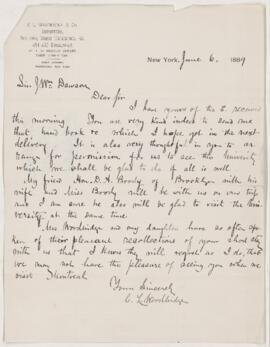 New York, June 6. 1889
Sir J Wm Dawson
Dear Sir
I have yours of the 5 received
this morning. You are very kind indeed to send me
that hand book which I hope get in the next
delivery. It is also very thoughtful in you to ar-
range for permission for us to see the University
which we shall be glad to do if all is well.
My friend Hon. D. A. Boody of Brooklyn with his
wife and Miss Boody will be with us on our trip
and I am sure he also will be glad to visit the Uni-
versity at the same time.
Mrs Woodbridge and my daughter have so often spo-
ken of their pleasant recollections of your short stay
with us that I know they will regret as I do, that
we may not have the pleasure of seeing you when we
visit Montreal
Yours Sincerely
C L Woodbridge